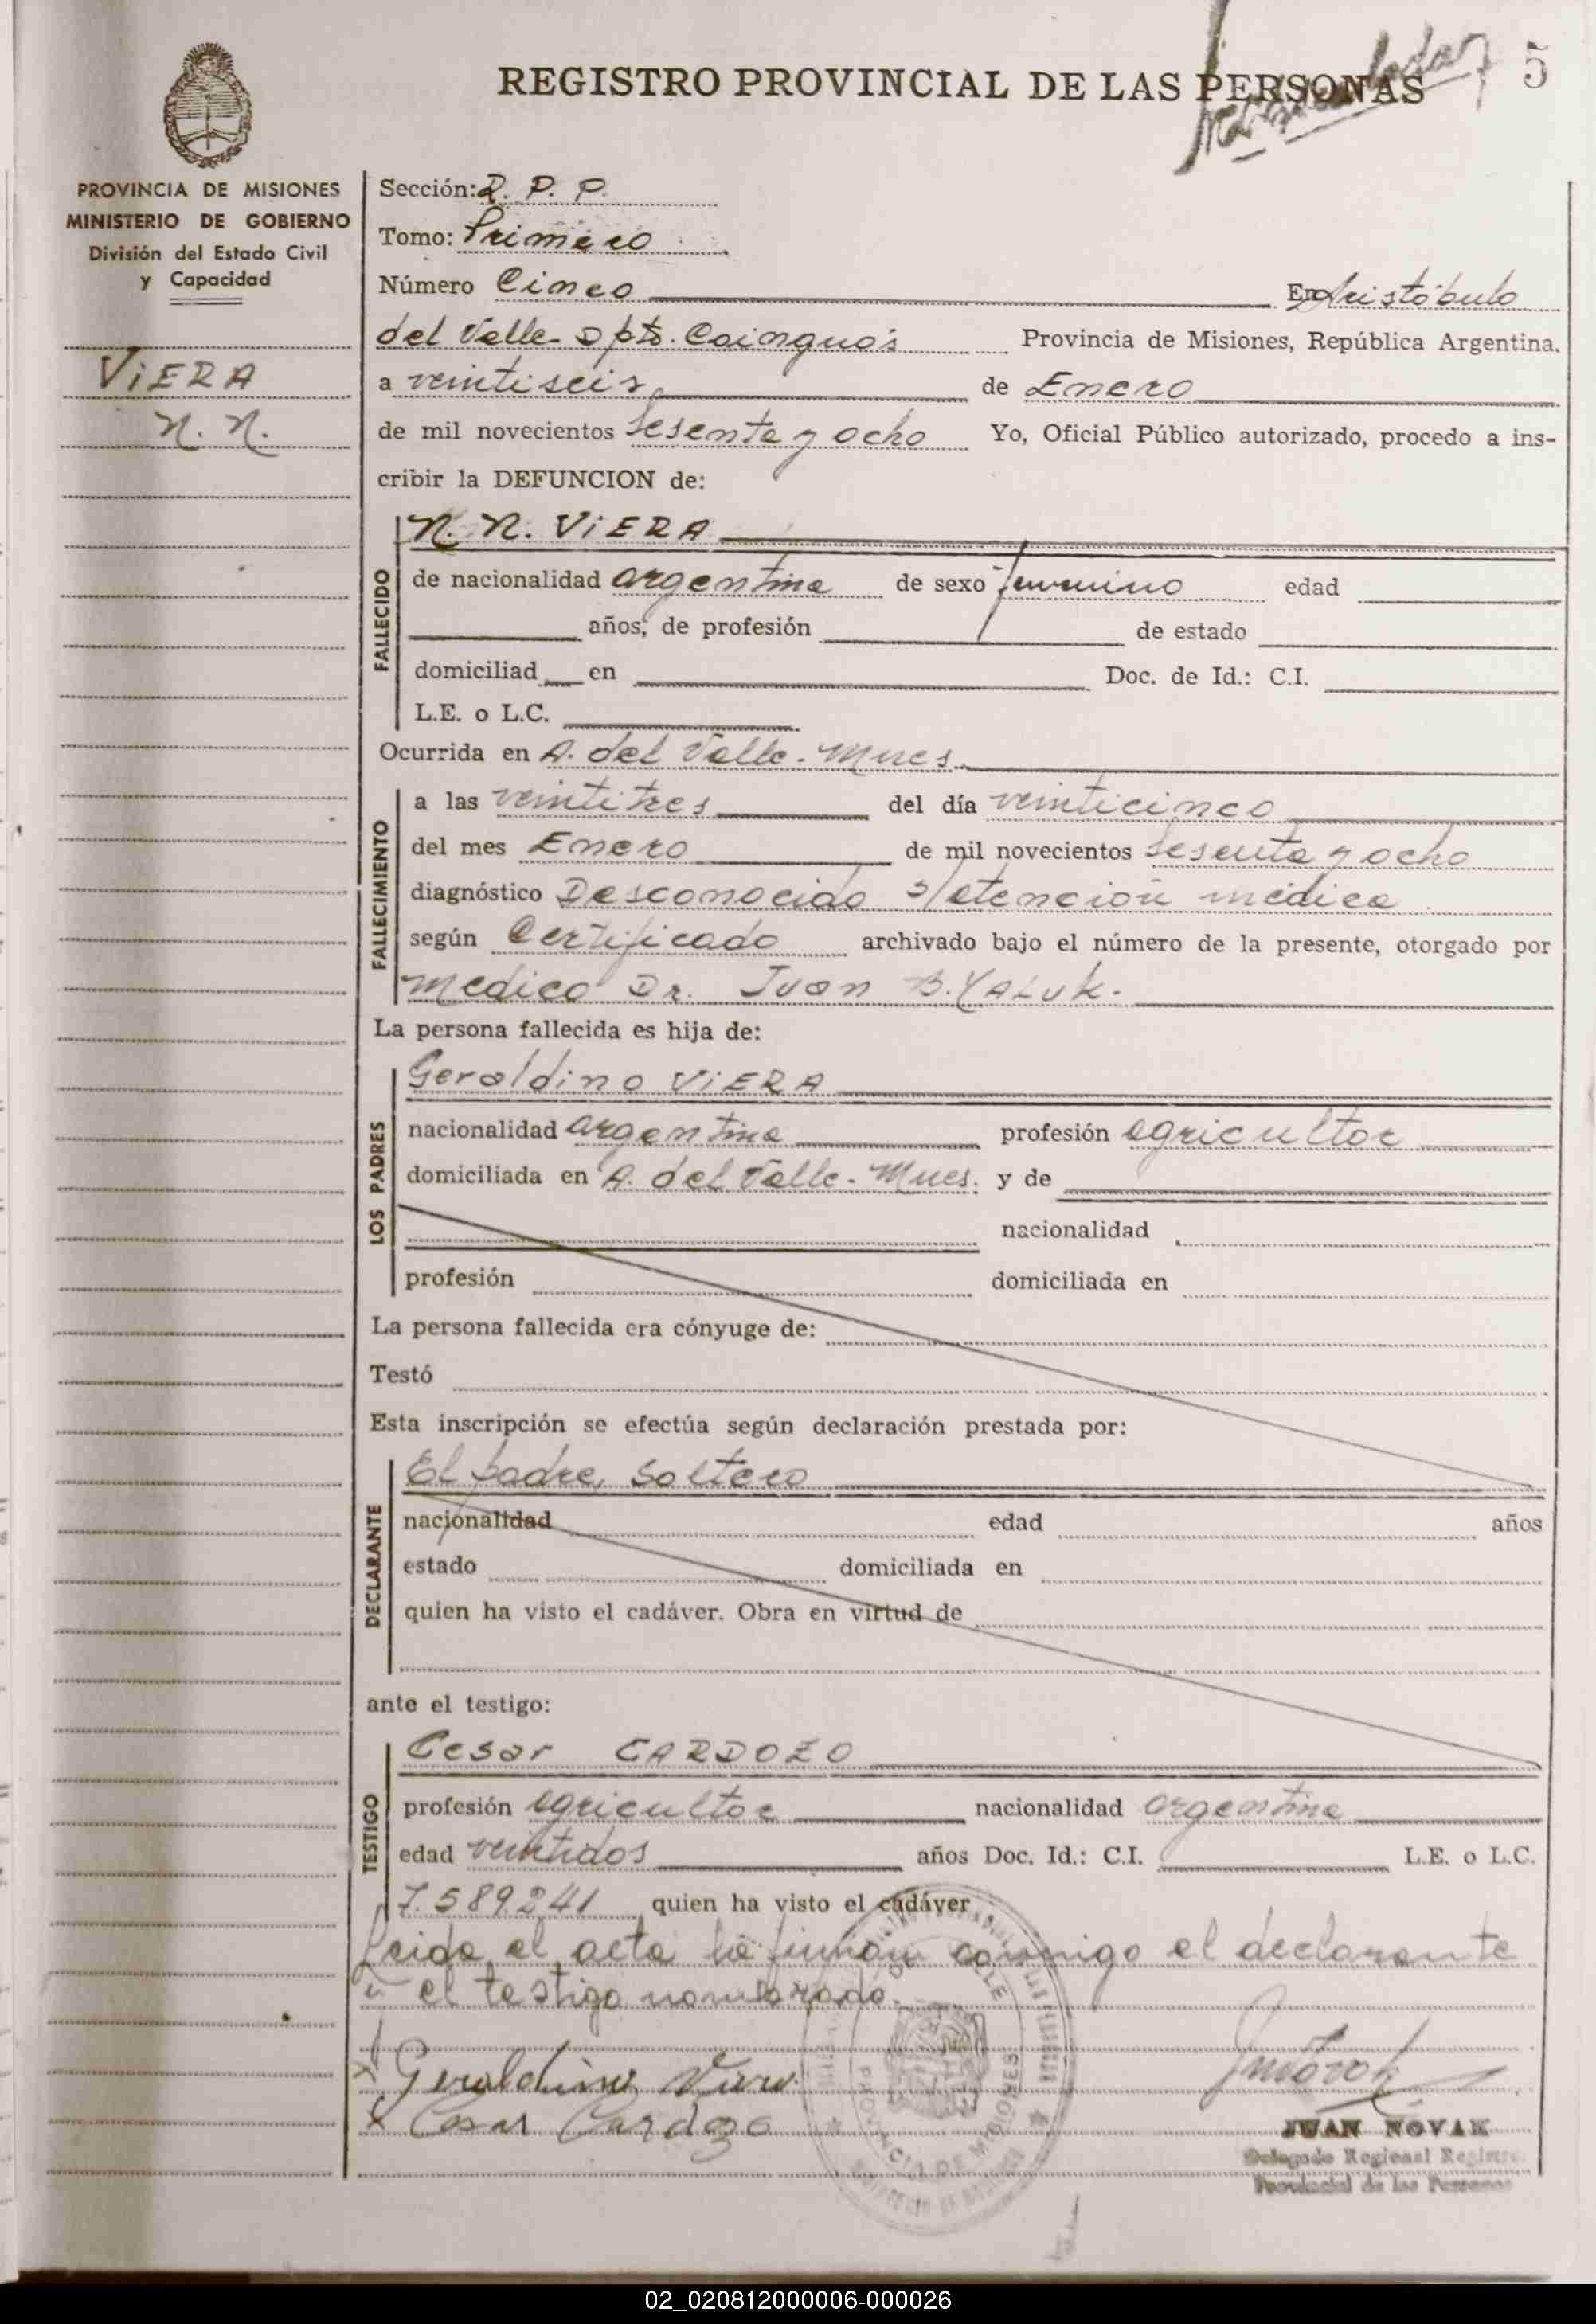 5
REGISTRO PROVINCIAL DE LAS PERSONAS
PROVINCIA DE MISIONES
MINISTERIO DE GOBIERNO
División del Estado Civil
y Capacidad
VIERA
N. N.
Sección: R. P. P.
Tomo: Primero
Número Cinco En Aristóbulo
del Valle Dpto. Cainguás Provincia de Misiones, República Argentina,
a veintiseis de Enero
de mil novecientos sesenta y ocho Yo, Oficial Público autorizado, procedo a ins-
cribir la DEFUNCION de:
FALLECIDO
N. N. VIERA
de nacionalidad argentina de sexo femenino edad
años, de profesión de estado
domiciliad en Doc. de Id.: C.I.
L.E. o L.C.
Ocurrida en A. del Valle - Mnes
FALLECIMIENTO
a las veintitres del día veinticinco
del mes Enero de mil novecientos sesenta y ocho
diagnóstico Desconocido s/atención médica
según Certificado archivado bajo el número de la presente, otorgado por
medico Dr. Juan B. YALUK.
La persona fallecida es hija de:
LOS PADRES
Geraldino VIERA
nacionalidad argentina profesión agricultor
domiciliada en A. del Valle - Mnes. y de
nacionalidad
profesión domiciliada en
La persona fallecida era cónyuge de:
Testó
Esta inscripción se efectúa según declaración prestada por:
DECLARANTE
El padre, soltero
nacionalidad edad años
estado domiciliada en
quien ha visto el cadáver. Obra en virtud de
ante el testigo:
TESTIGO
Cesar CARDOZO
profesión agricultor nacionalidad argentina
edad veintidos años Doc. Id.: C.I. L.E. o L.C.
7.589.241 quien ha visto el cadáver
Leida el acta la firman conmigo el declarante
y el testigo nombrado.
Geraldino Viera
Cesar Cardozo
PROVINCIA DE MISIONES
JUAN NOVAK
Delegado Regional Registro
Provincial de las Personas
02_020812000006-000026